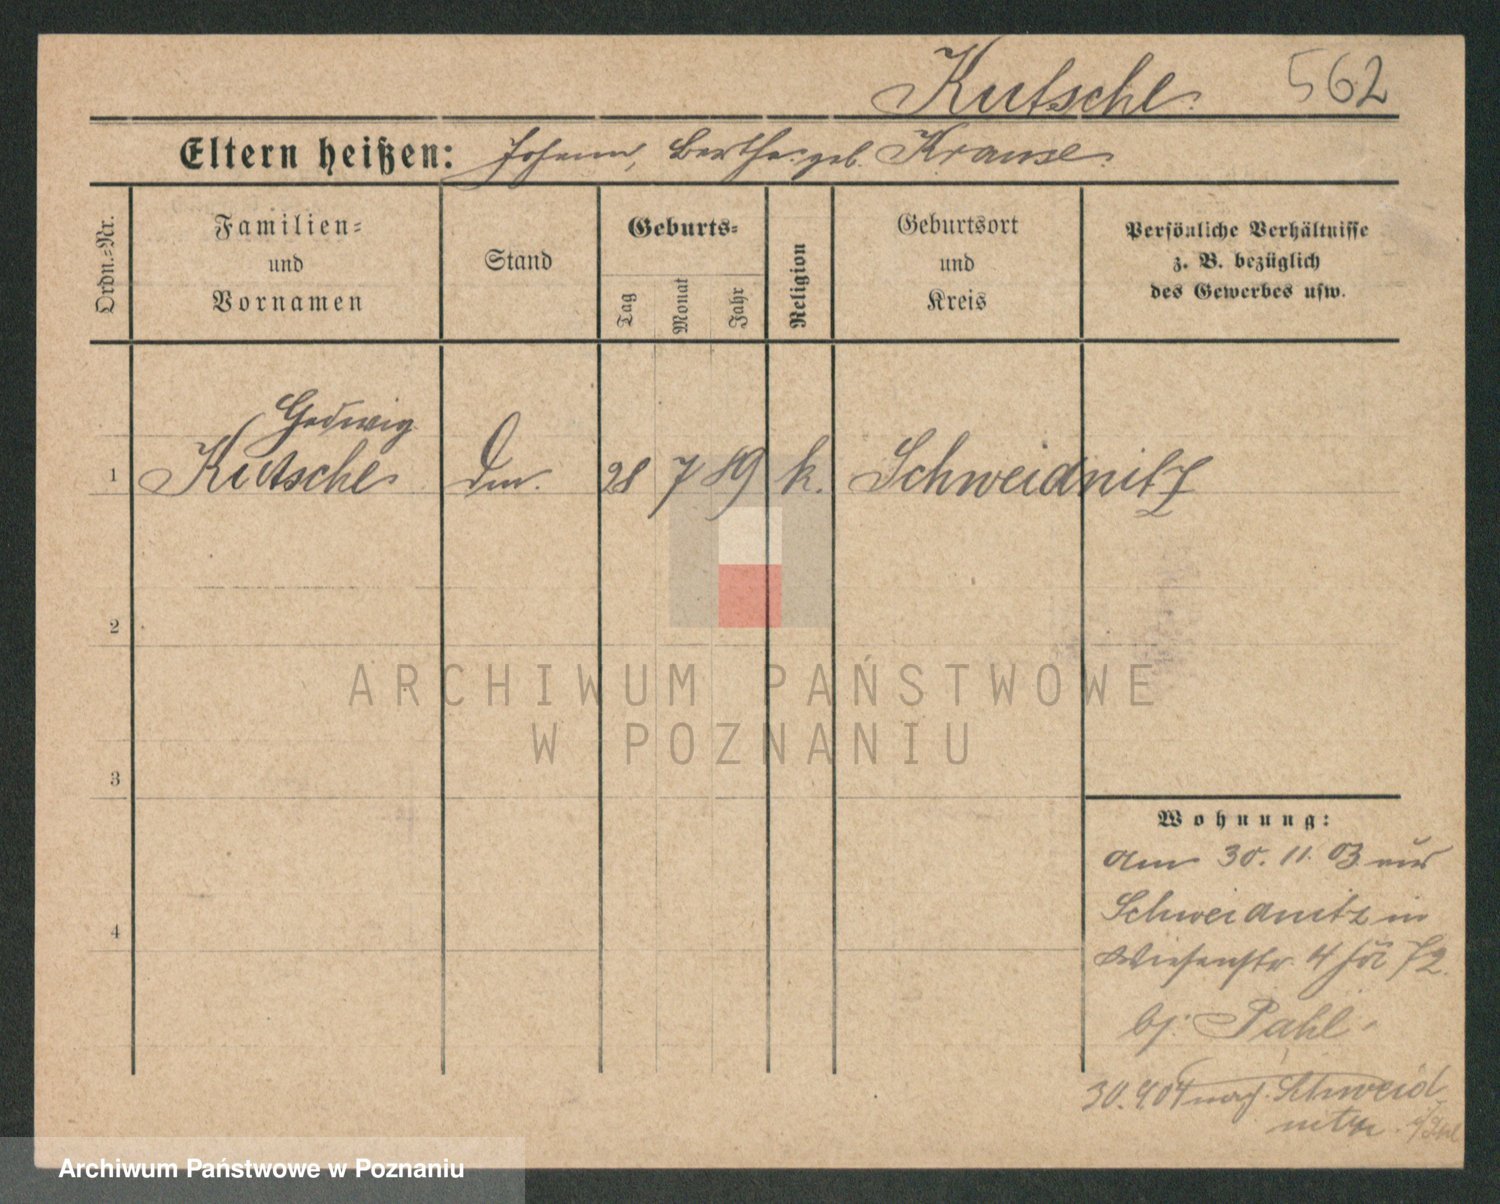 Kutsche
562
Eltern heißen: Johann, Bertha geb. Krause
Ordn.-Nr.
Familien-
und
Vornamen
Stand
Geburts-
Tag
Monat
Jahr
Religion
Geburtsort
und
Kreis
Persönliche Verhältnisse
z. B. bezüglich
des Gewerbes usw.
Hedwig
1 Kutsche 28 7 89 k. Schweidnitz
2
3
4
Wohnung:
am 30. 11. 03 aus
Schweidnitz in
Wiesenstr. 4
bj. Pahl
30. 9 04 nach Schweid
nitz
ARCHIWUM PAŃSTWOWE
W POZNANIU
Archiwum Państwowe w Poznaniu